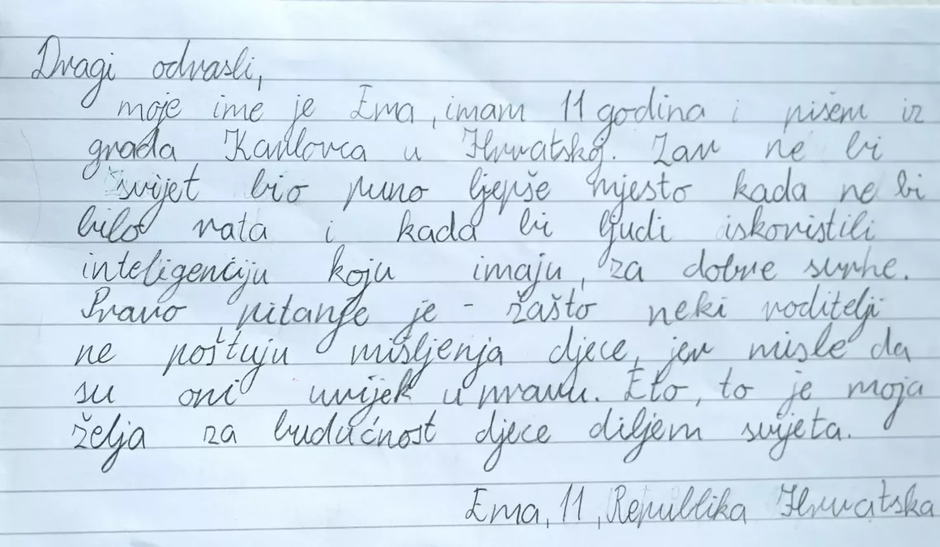 Dragi odrasli,
moje ime je Ema, imam 11 godina i pišem iz
grada Karlovca u Hrvatskoj. Zar ne bi
svijet bio puno ljepše mjesto kada ne bi
bilo rata i kada bi ljudi iskoristili
inteligenciju koju imaju, za dobre svrhe.
Pravo pitanje je - zašto neki roditelji
ne poštuju mišljenja djece, jer misle da
su oni uvijek u pravu. Eto, to je moja
želja za budućnost djece diljem svijeta.
Ema, 11, Republika Hrvatska